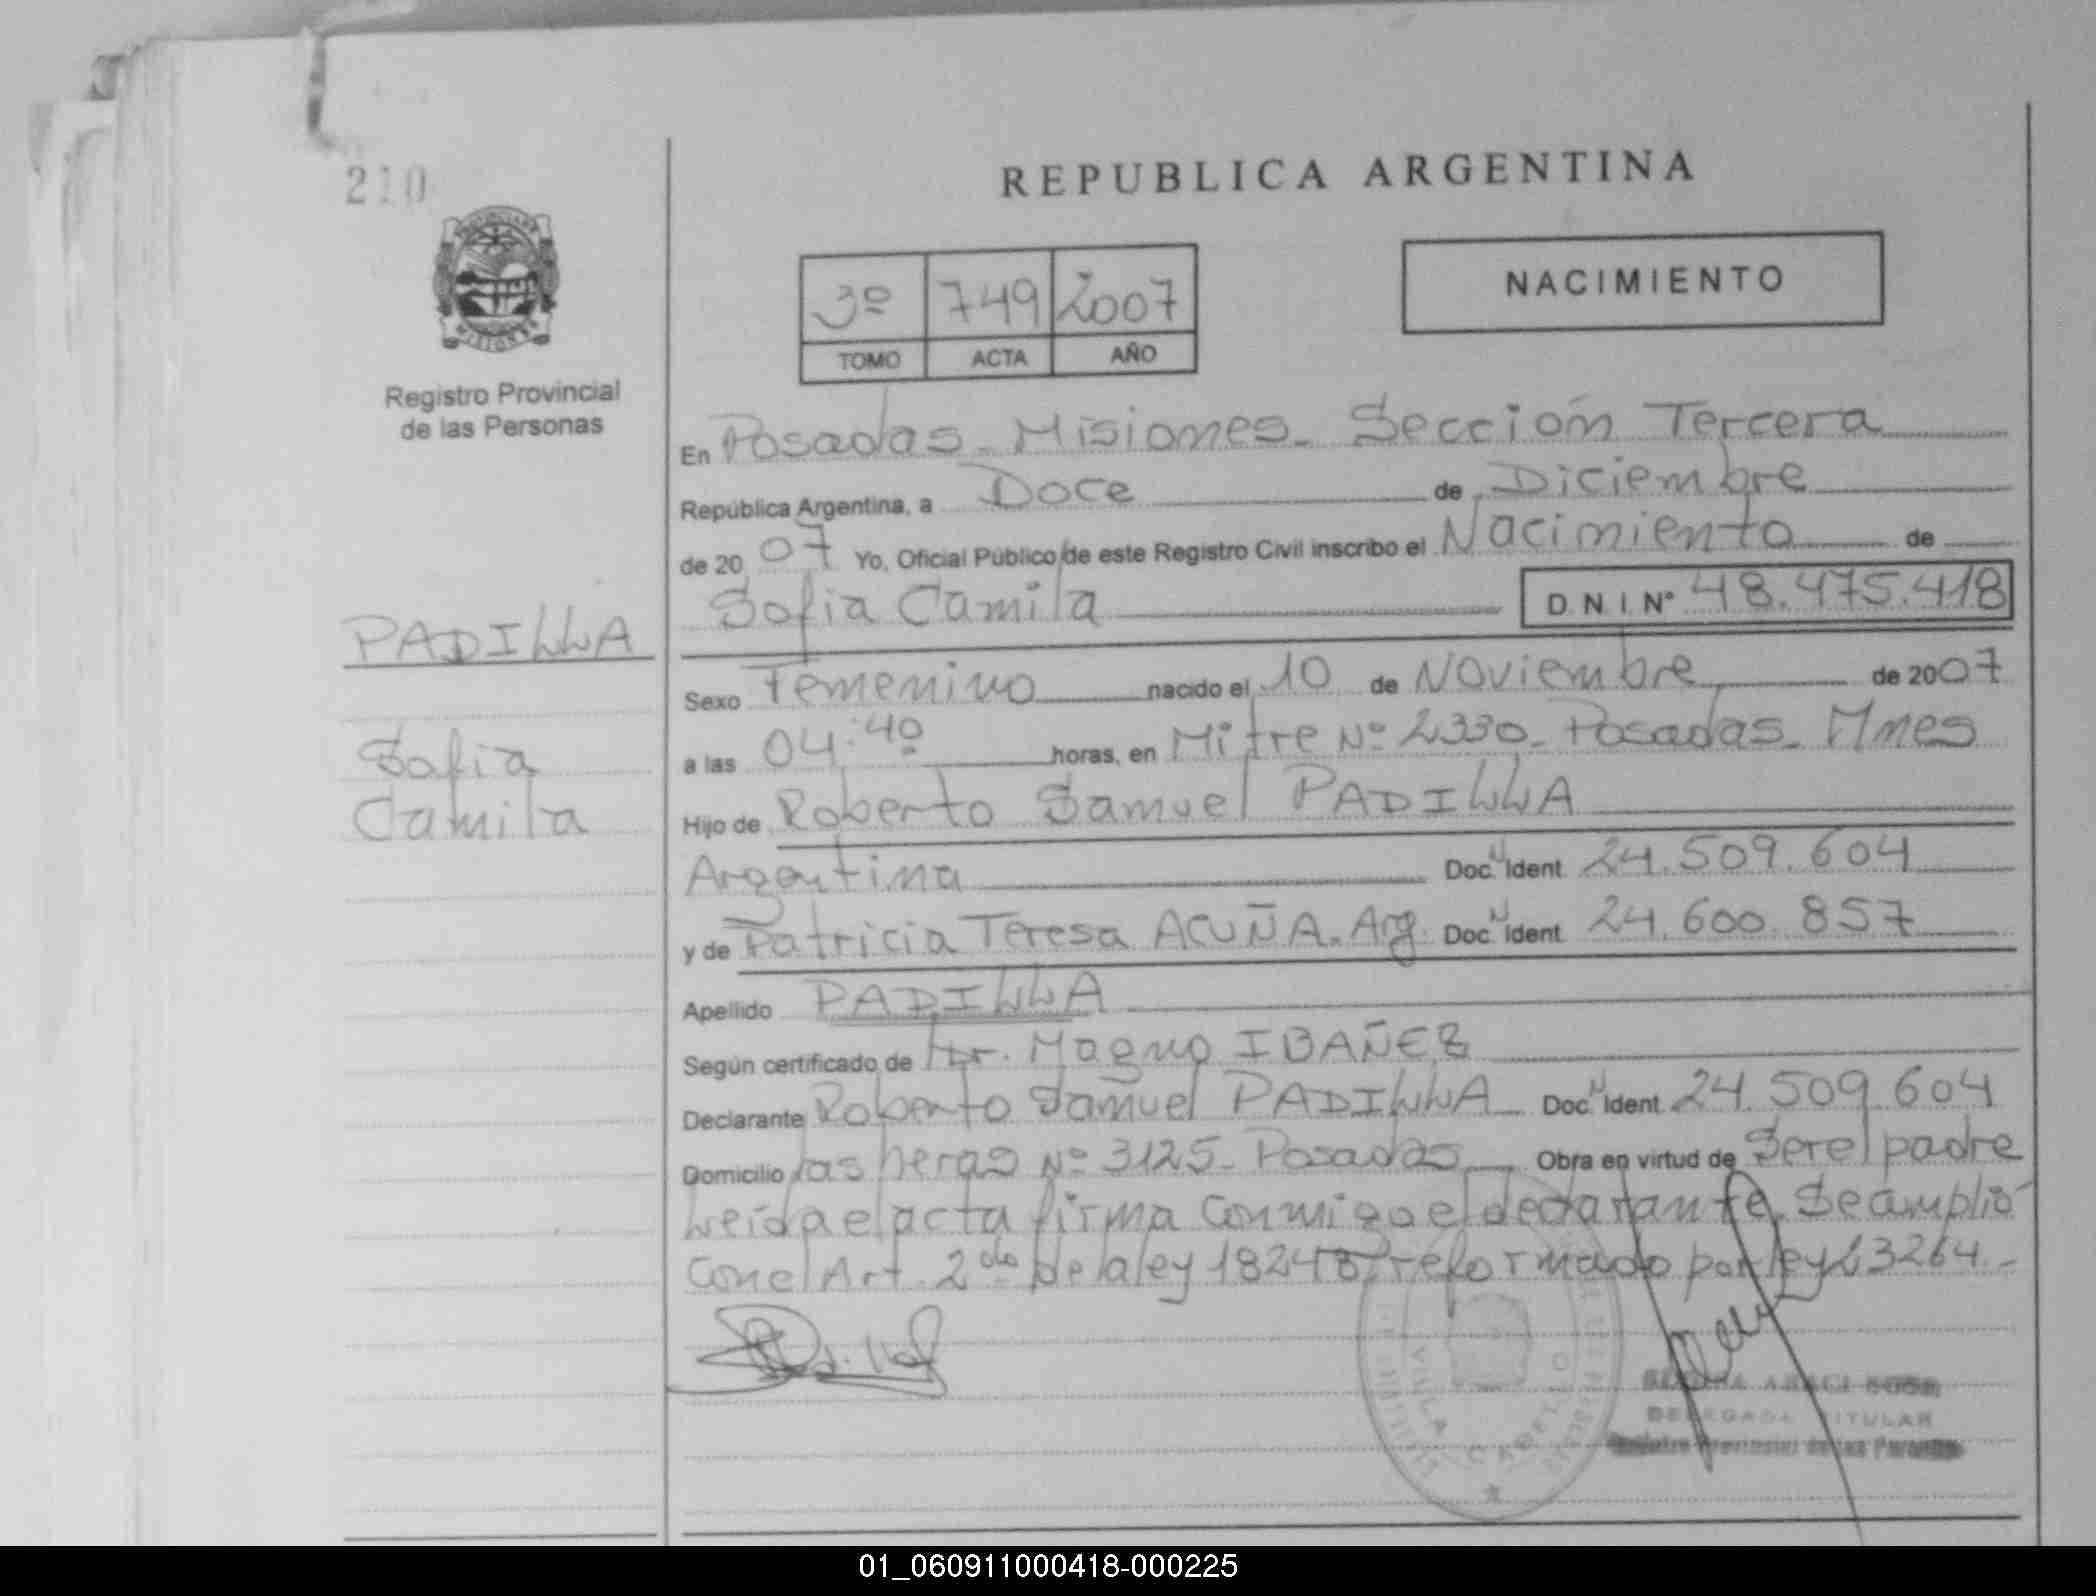 210
REPUBLICA ARGENTINA
NACIMIENTO
3º 749 2007
TOMO ACTA AÑO
Registro Provincial
de las Personas
En Posadas - Misiones - Sección Tercera
República Argentina, a Doce de Diciembre
de 2007 Yo, Oficial Público de este Registro Civil inscribo el Nacimiento de
Sofia Camila D.N.I.Nº 48.475.418
PADILLA
Sofia
Camila
Sexo Femenino nacido el 10 de Noviembre de 2007
a las 04:40 horas, en Mitre Nº 2330 - Posadas - Mnes
Hijo de Roberto Samuel PADILLA
Argentina Doc. N Ident. 24.509.604
y de Patricia Teresa ACUÑA. Arg. Doc. N Ident. 24.600.857
Apellido PADILLA
Según certificado de Dr. Magno IBAÑEZ
Declarante Roberto Samuel PADILLA Doc. N Ident. 24.509.604
Domicilio las heras Nº 3125 - Posadas Obra en virtud de Ser el padre
Leída el acta firma conmigo el declarante. Se amplió
con el Art. 2do de la ley 18248 reformado por ley 23264.-
DELEGADA TITULAR
01_060911000418-000225